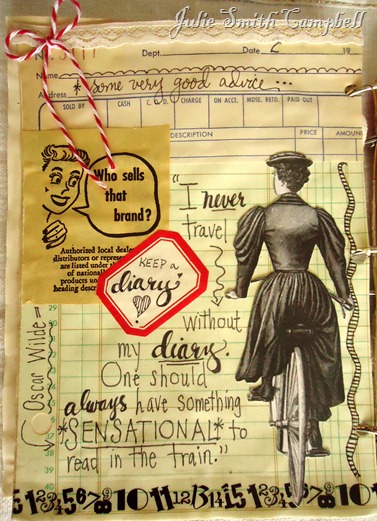 Julie Smith Campbell
Dept.
Date
19
Name
Address
* some very good advice ...
SOLD BY
CASH
C.O.D.
CHARGE
ON ACCT.
MDSE. RETD.
PAID OUT
DESCRIPTION
PRICE
AMOUN
Who sells
that
brand?
Authorized local deale
distributors or represen
are listed under th
of national
products un
heading desc
KEEP a
diary
"I never
travel
without
my diary.
One should
always have something
*SENSATIONAL* to
read in the train."
Oscar Wilde
29
30
31
32
33
34
35
36
37
38
39
40
5 1 2 3 4 5 6 7 8 9 10 11 12 13 14 15 1 2 3 4 5 6 7 8